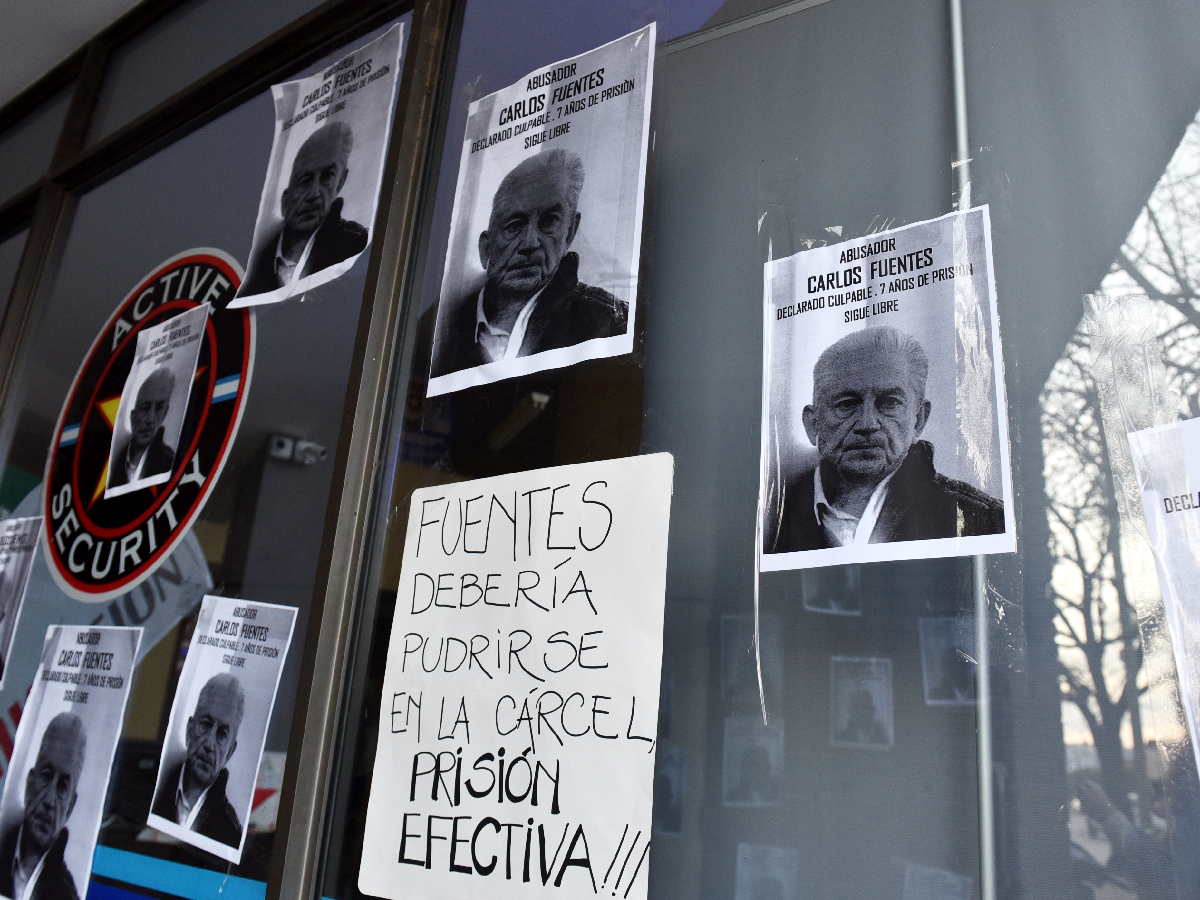 ABUSADOR
CARLOS FUENTES
DECLARADO CULPABLE . 7 AÑOS DE PRISIÓN
SIGUE LIBRE
ABUSADOR
CARLOS FUENTES
DECLARADO CULPABLE . 7 AÑOS DE PRISIÒN
SIGUE LIBRE
ABUSADOR
CARLOS FUENTES
DECLARADO CULPABLE . 7 AÑOS DE PRISIÒN
SIGUE LIBRE
ACTIVE
SECURITY
CARLOS FUENTES
ABUSADOR
CARLOS FUENTES
DECLARADO CULPABLE . 7 AÑOS DE PRISIÒN
SIGUE LIBRE
ABUSADOR
CARLOS FUENTES
DECLARADO CULPABLE . 7 AÑOS DE PRISIÒN
SIGUE LIBRE
FUENTES
DEBERÍA
PUDRIRSE
EN LA CÁRCEL,
PRISIÓN
EFECTIVA!!!